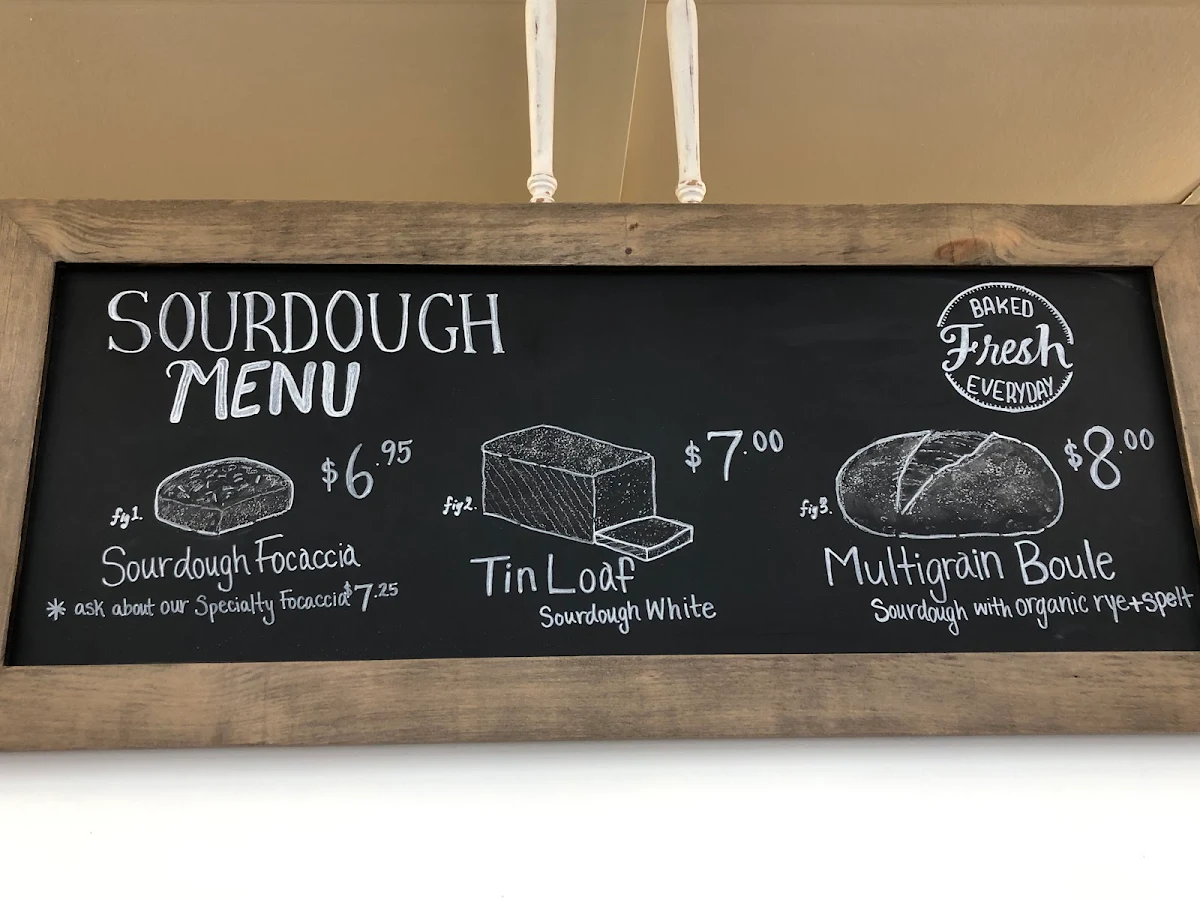 SOURDOUGH
MENU
BAKED
Fresh
EVERYDAY
fig1.
$6.95
Sourdough Focaccia
* ask about our Specialty Focaccia $7.25
fig2.
$7.00
Tin Loaf
Sourdough White
fig3.
$8.00
Multigrain Boule
Sourdough with organic rye+spelt